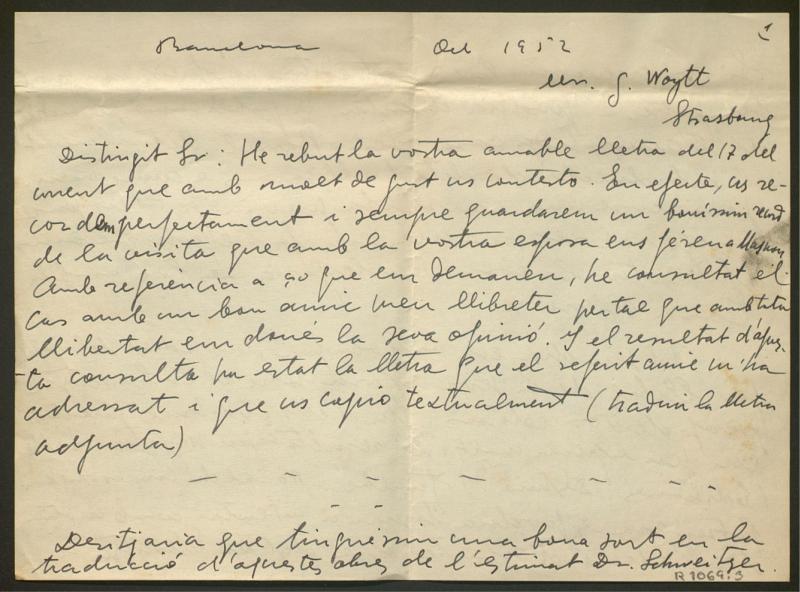 1
Barcelona Oct 1952
Mr. G. Woytt
Strasbourg
Distingit Sr: He rebut la vostra amable lletra del 17 del
corrent que amb molt de gust us contesto. En efecte, us re-
cordem perfectament i sempre guardarem un boníssim record
de la visita que amb la vostra esposa ens féreu a
Amb referència a ço que em demaneu, he consultat el
cas amb un bon amic meu llibreter per tal que amb tota
llibertat em donés la seva opinió. I el resultat d'aques-
ta consulta ha estat la lletra que el referit amic m'ha
adressat i que us copio textualment (traduir la lletra
adjunta)
Desitjaria que tinguéssin una bona sort en la
traducció d'aquestes obres de l'estimat Dr. Schweitzer.
R 1069:3